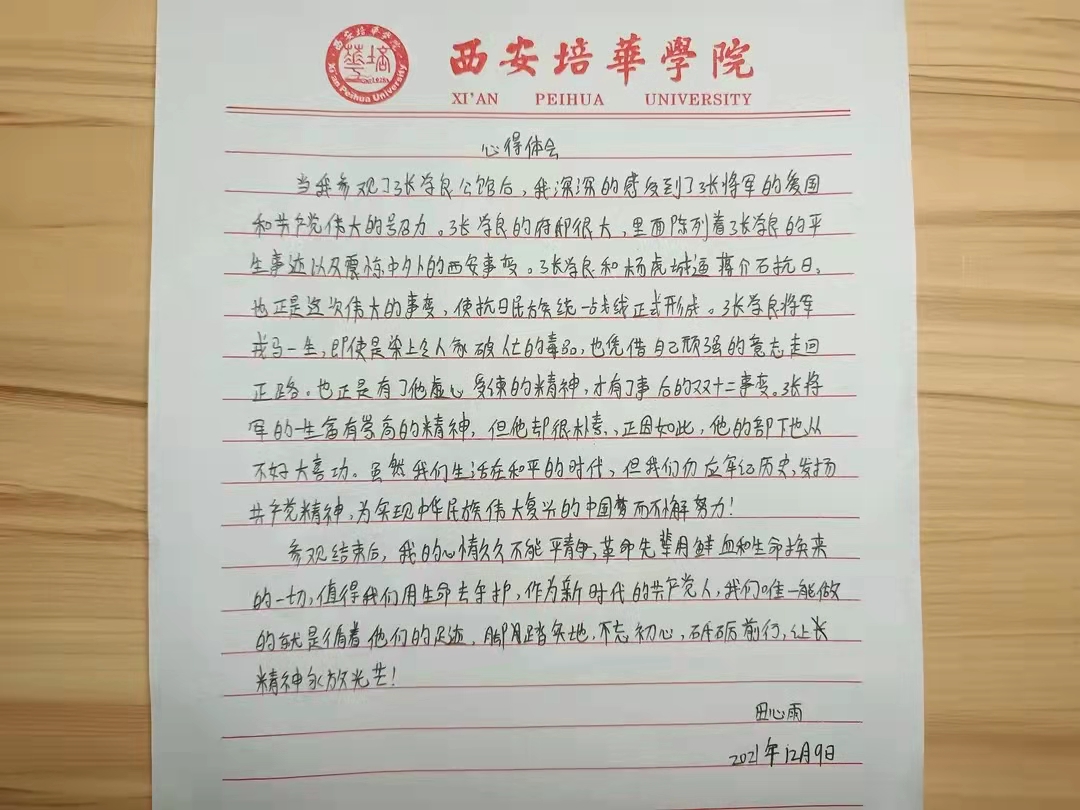 西安培華學院
Xi'an Peihua University
西安培華學院
XI'AN PEIHUA UNIVERSITY
心得体会
当我参观了张学良公馆后，我深深的感受到了张将军的爱国
和共产党伟大的号召力。张学良的府邸很大，里面陈列着张学良的平
生事迹以及震惊中外的西安事变。张学良和杨虎城逼蒋介石抗日，
也正是这次伟大的事变，使抗日民族统一战线正式形成。张学良将军
戎马一生，即使是染上令人家破人亡的毒品，也凭借自己顽强的意志走回
正路。也正是有了他虚心受谏的精神，才有了事后的双十二事变。张将
军的一生富有崇高的精神，但他却很朴素，正因如此，他的部下也从
不好大喜功。虽然我们生活在和平的时代，但我们仍应牢记历史，发扬
共产党精神，为实现中华民族伟大复兴的中国梦而不懈努力！
参观结束后，我的心情久久不能平静，革命先辈用鲜血和生命换来
的一切，值得我们用生命去守护，作为新时代的共产党人，我们唯一能做
的就是循着他们的足迹，脚踏实地，不忘初心，砥砺前行，让长
精神永放光芒！
田心雨
2021年12月9日